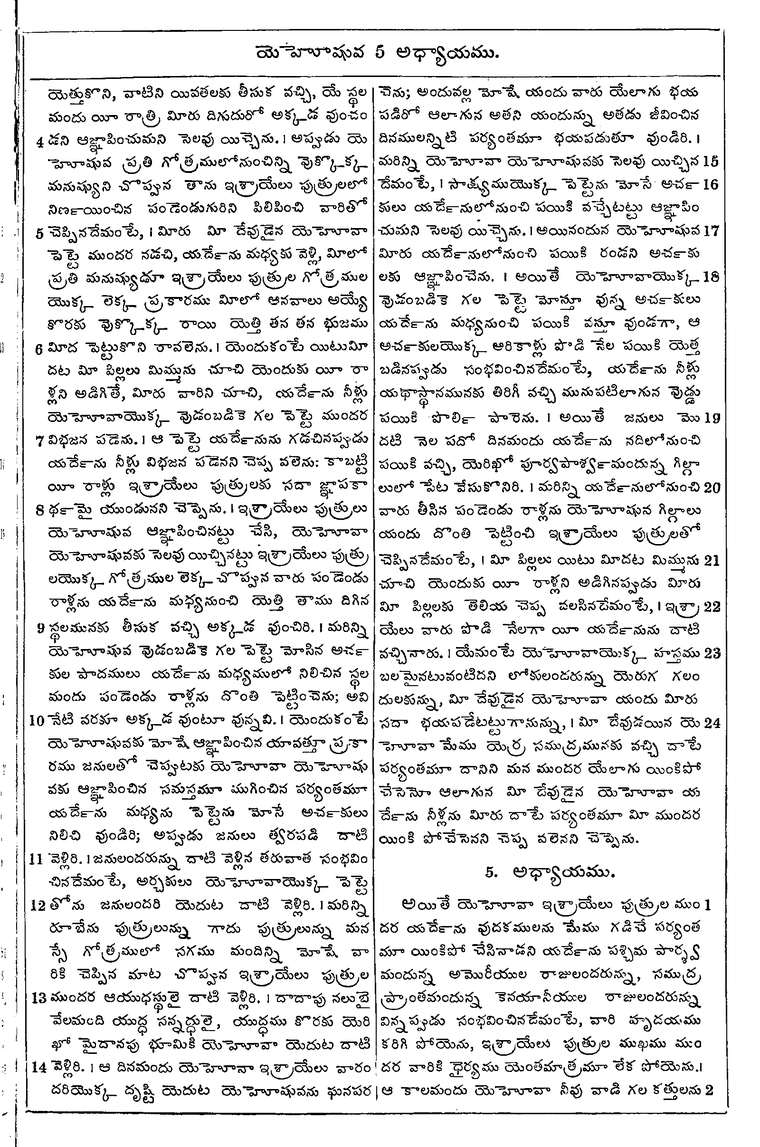 యెహోషువ 5 అధ్యాయము.
యెత్తుకొని, వాటిని యివతలకు తీసుక వచ్చి, యే స్థల
మందు యీ రాత్రి మిరు దిగుదురో అక్కడ వుంచం
4 డని ఆజ్ఞాపించుమని సెలవు యిచ్చెను. । అప్పుడు యె
హోషువ ప్రతి గోత్రములోనుంచిన్ని వొక్కొక్క
మనుష్యుని చొప్పున తాను ఇశ్రాయేలు పుత్రులలో
నిర్ణయించిన పండెండుగురిని పిలిపించి వారితో
5 చెప్పినదేమంటే, । మిరు మి దేవుడైన యెహోవా
పెట్టె ముందర నడచి, యర్దేను మధ్యకు వెళ్లి, మిలో
ప్రతి మనుష్యుడూ ఇశ్రాయేలు పుత్రుల గోత్రముల
యొక్క లెక్క ప్రకారము మిలో ఆనవాలు అయ్యే
కొరకు వొక్కొక్క రాయి యెత్తి తన తన భుజము
6 మిద పెట్టుకొని రావలెను. । యెందుకంటే యిటుమి
దట మి పిల్లలు మిమ్మును చూచి యెందుకు యీ రా
ళ్లని అడిగితే, మిరు వారిని చూచి, యర్దేను నీళ్లు
యెహోవాయొక్క వొడంబడికె గల పెట్టె ముందర
7 విభజన పడెను. । ఆ పెట్టె యర్దేనును గడచినప్పుడు
యర్దేను నీళ్లు విభజన పడెనని చెప్ప వలెను: కాబట్టి
యీ రాళ్లు ఇశ్రాయేలు పుత్రులకు సదా జ్ఞాపకా
8 ర్థమై యుండునని చెప్పెను. । ఇశ్రాయేలు పుత్రులు
యెహోషువ ఆజ్ఞాపించినట్టు చేసి, యెహోవా
యెహోషువకు సెలవు యిచ్చినట్టు ఇశ్రాయేలు పుత్రు
లయొక్క గోత్రముల లెక్క చొప్పున వారు పండెండు
రాళ్లను యర్దేను మధ్యనుంచి యెత్తి తాము దిగిన
9 స్థలమునకు తీసుక వచ్చి అక్కడ వుంచిరి. । మరిన్ని
యెహోషువ వొడంబడికె గల పెట్టె మోసిన అర్చ
కుల పాదములు యర్దేను మధ్యములో నిలిచిన స్థల
మందు పండెండు రాళ్లను దొంతి పెట్టించెను; అవి
10 నేటి వరకూ అక్కడ వుంటూ వున్నవి. । యెందుకంటే
యెహోషువకు మోషే ఆజ్ఞాపించిన యావత్తూ ప్రకా
రము జనులతో చెప్పుటకు యెహోవా యెహోషు
వకు ఆజ్ఞాపించిన సమస్తమూ ముగించిన పర్యంతమూ
యర్దేను మధ్యను పెట్టెను మోసే అర్చకులు
నిలిచి వుండిరి; అప్పుడు జనులు త్వరపడి దాటి
11 వెళ్లిరి. । జనులందరున్ను దాటి వెళ్లిన తరువాత సంభవిం
చినదేమంటే, అర్చకులు యెహోవాయొక్క పెట్టె
12 తోను జనులందరి యెదుట దాటి వెళ్లిరి. । మరిన్ని
రూబేను పుత్రులున్ను గాదు పుత్రులున్ను మన
స్సే గోత్రములో సగము మందిన్ని మోషే వా
రికి చెప్పిన మాట చొప్పున ఇశ్రాయేలు పుత్రుల
13 ముందర ఆయుధస్థులై దాటి వెళ్లిరి. । దాదాపు నలుబై
వేలమంది యుద్ధ సన్నద్ధులై, యుద్ధము కొరకు యెరి
ఖో మైదానపు భూమికి యెహోవా యెదుట దాటి
14 వెళ్లిరి. । ఆ దినమందు యెహోవా ఇశ్రాయేలు వారం
దరియొక్క దృష్టి యెదుట యెహోషువను ఘనపర
చెను; అందువల్ల మోషే యందు వారు యేలాగు భయ
పడిరో ఆలాగున అతని యందున్ను అతడు జీవించిన
దినములన్నిటి పర్యంతమూ భయపడుతూ వుండిరి. ।
మరిన్ని యెహోవా యెహోషువకు సెలవు యిచ్చిన 15
దేమంటే, । సాక్ష్యముయొక్క పెట్టెను మోసే అర్చ 16
కులు యర్దేనులోనుంచి పయికి వచ్చేటట్టు ఆజ్ఞాపిం
చుమని సెలవు యిచ్చెను. । అయినందున యెహోషువ 17
మిరు యర్దేనులోనుంచి పయికి రండని అర్చకు
లకు ఆజ్ఞాపించెను. । అయితే యెహోవాయొక్క 18
వొడంబడికె గల పెట్టె మోస్తూ వున్న అర్చకులు
యర్దేను మధ్యనుంచి పయికి వస్తూ వుండగా, ఆ
అర్చకులయొక్క అరికాళ్లు పొడి నేల పయికి యెత్త
బడినప్పుడు సంభవించినదేమంటే, యర్దేను నీళ్లు
యథాస్థానమునకు తిరిగీ వచ్చి మునుపటిలాగున వొడ్డు
పయికి పొర్లి పారెను. । అయితే జనులు మొ 19
దటి నెల పదో దినమందు యర్దేను నదిలోనుంచి
పయికి వచ్చి, యెరిఖో పూర్వపార్శ్వమందున్న గిల్గా
లులో పేట వేసుకొనిరి. । మరిన్ని యర్దేనులోనుంచి 20
వారు తీసిన పండెండు రాళ్లను యెహోషువ గిల్గాలు
యందు దొంతి పెట్టించి ఇశ్రాయేలు పుత్రులతో
చెప్పినదేమంటే, । మి పిల్లలు యిటు మిదట మిమ్మును 21
చూచి యెందుకు యీ రాళ్లని అడిగినప్పుడు మిరు
మి పిల్లలకు తెలియ చెప్ప వలసినదేమంటే, । ఇశ్రా 22
యేలు వారు పొడి నేలగా యీ యర్దేనును దాటి
వచ్చినారు. । యేమంటే యెహోవాయొక్క హస్తము 23
బలమైనటువంటిదని లోకులందరున్ను యెరుగ గలం
దులకున్ను, మి దేవుడైన యెహోవా యందు మిరు
సదా భయపడేటట్టుగానున్ను, । మి దేవుడయిన యె 24
హోవా మేము యెర్ర సముద్రమునకు వచ్చి దాటే
పర్యంతమూ దానిని మన ముందర యేలాగు యింకిపో
చేసెనో ఆలాగున మి దేవుడైన యెహోవా య
ర్దేను నీళ్లను మిరు దాటే పర్యంతమూ మి ముందర
యింకి పోచేసెనని చెప్ప వలెనని చెప్పెను.
5. అధ్యాయము.
అయితే యెహోవా ఇశ్రాయేలు పుత్రుల ముం 1
దర యర్దేను వుదకములను మేము గడిచే పర్యంత
మూ యింకిపో చేసినాడని యర్దేను పశ్చిమ పార్శ్వ
మందున్న అమోరీయుల రాజులందరున్ను, సముద్ర
ప్రాంతమందున్న కెనయానీయుల రాజులందరున్ను
విన్నప్పుడు సంభవించినదేమంటే, వారి హృదయము
కరిగి పోయెను, ఇశ్రాయేలు పుత్రుల ముఖము ముం
దర వారికి ధైర్యము యెంతమాత్రమూ లేక పోయెను. ।
ఆ కాలమందు యెహోవా నీవు వాడి గల కత్తులను 2